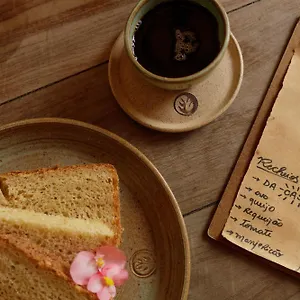 Recheios
→ DA CA
→ ovo
→ queijo
→ Requeijão
→ Tomate
→ Manjericão